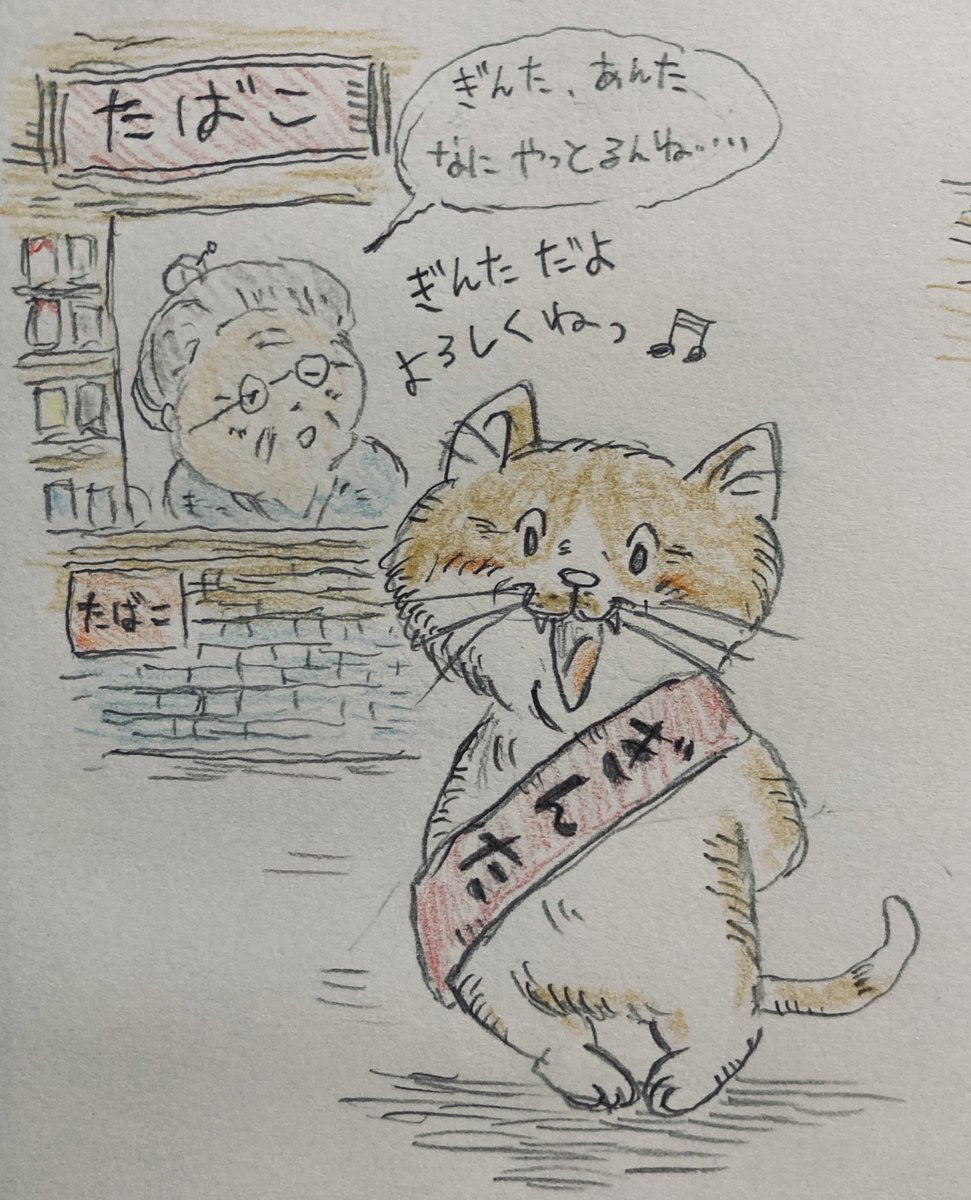 たばこ
ぎんた、あんた
なに やっとるんね……
ぎんた だよ
よろしくねっ
たばこ
ぎんた